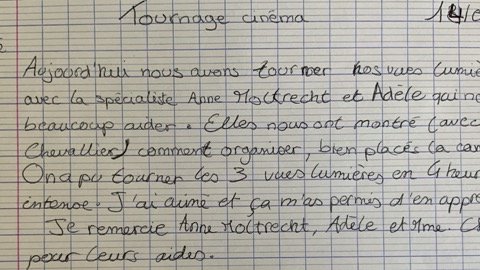 Tournage cinéma
Aujoord'hui nous avons tourner nos vues lumiè
avec la spécialiste Anne Holtrecht et Adèle qui no
beaucoup aider. Elles nous ont montré (avec
Chevallier) comment organiser, bien placés la ca
On a pu tourner les 3 vues lumières en 4 heur
intense. J'ai aimé et ça m'as permes d'en appre
Je remarcie Anne Holtrecht, Adèle et Mme. C
pour leurs aides.